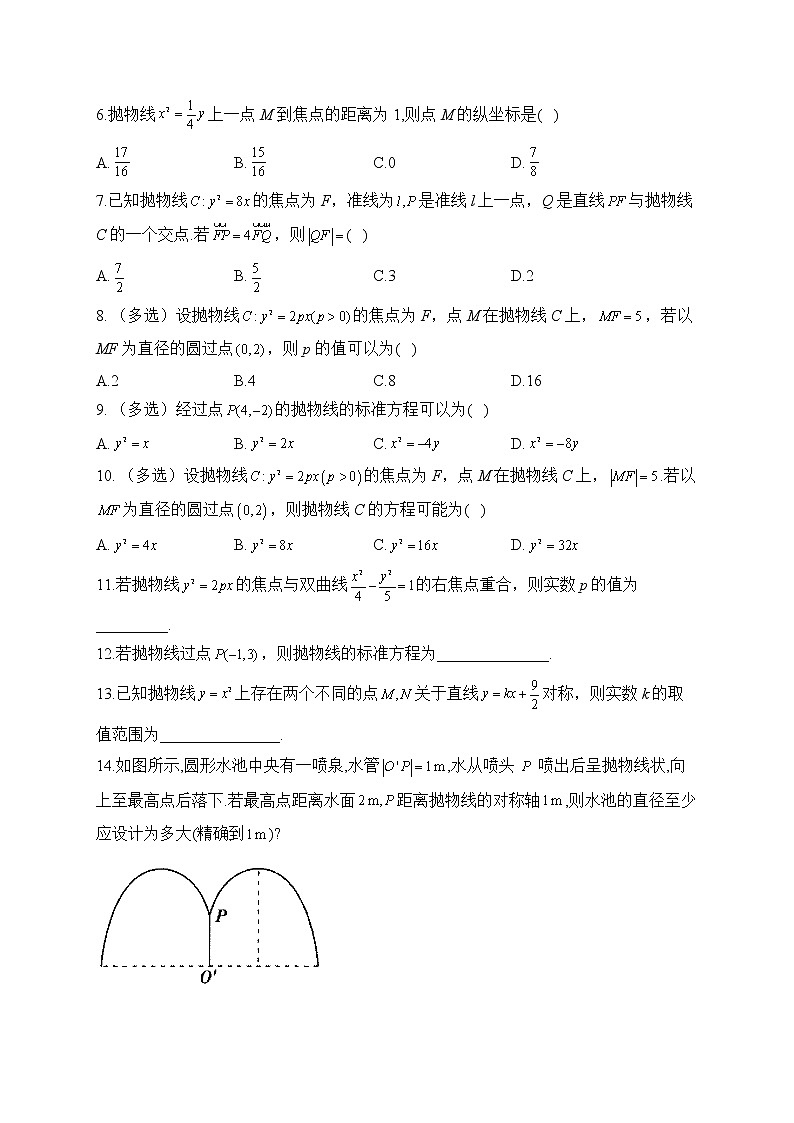 6.抛物线 x² = 1/4 y 上一点 M 到焦点的距离为 1,则点 M 的纵坐标是( )
A. 17/16 B. 15/16 C.0 D. 7/8
7.已知抛物线 C: y² = 8x 的焦点为 F，准线为 l,P 是准线 l 上一点，Q 是直线 PF 与抛物线
C 的一个交点.若 FP = 4FQ，则 |QF| = ( )
A. 7/2 B. 5/2 C.3 D.2
8. （多选）设抛物线 C: y² = 2px(p > 0) 的焦点为 F，点 M 在抛物线 C 上，MF = 5，若以
MF 为直径的圆过点 (0,2)，则 p 的值可以为( )
A.2 B.4 C.8 D.16
9. （多选）经过点 P(4,−2) 的抛物线的标准方程可以为( )
A. y² = x B. y² = 2x C. x² = −4y D. x² = −8y
10. （多选）设抛物线 C: y² = 2px(p > 0) 的焦点为 F，点 M 在抛物线 C 上，|MF| = 5.若以
MF 为直径的圆过点 (0,2)，则抛物线 C 的方程可能为( )
A. y² = 4x B. y² = 8x C. y² = 16x D. y² = 32x
11.若抛物线 y² = 2px 的焦点与双曲线 x²/4 − y²/5 = 1 的右焦点重合，则实数 p 的值为
_________.
12.若抛物线过点 P(−1,3)，则抛物线的标准方程为______________.
13.已知抛物线 y = x² 上存在两个不同的点 M,N 关于直线 y = kx + 9/2 对称，则实数 k 的取
值范围为_______________.
14.如图所示,圆形水池中央有一喷泉,水管 |O'P| = 1m,水从喷头 P 喷出后呈抛物线状,向
上至最高点后落下.若最高点距离水面 2m,P 距离抛物线的对称轴 1m,则水池的直径至少
应设计为多大(精确到 1m)?
P
O'